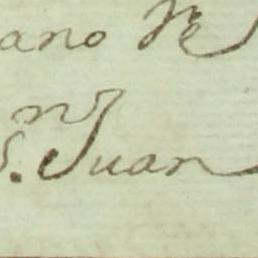 ano
n
S. Juan